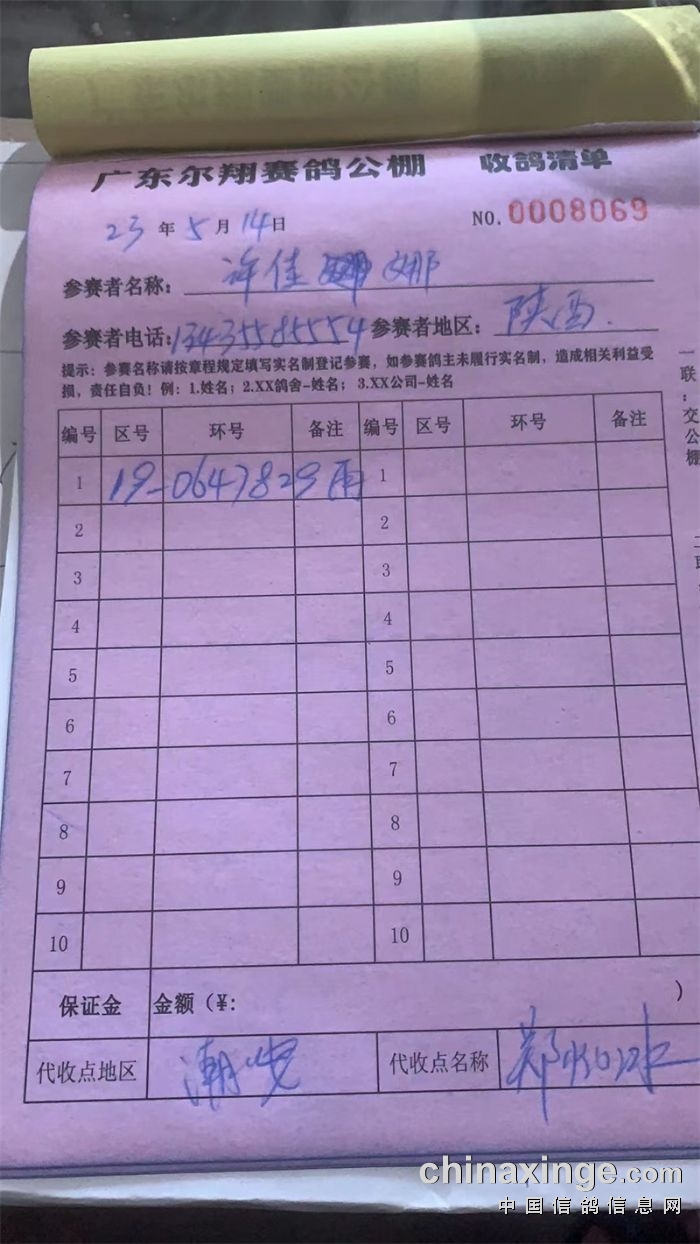 广东尔翔赛鸽公棚 收鸽清单
23 年 5 月 14 日 NO.0008069
参赛者名称: 许佳 娜
参赛者电话: 13435585554 参赛者地区: 陕西.
提示: 参赛名称请按章程规定填写实名制登记参赛, 如参赛鸽主未履行实名制, 造成相关利益受
损, 责任自负! 例: 1.姓名; 2.XX鸽舍-姓名; 3.XX公司-姓名
编号 区号 环号 备注 编号 区号 环号 备注
1 19-0647829 雨 1
2 2
3 3
4 4
5 5
6 6
7 7
8 8
9 9
10 10
保证金 金额 (¥: )
代收点地区 潮 代收点名称 郑
一联:交公棚
chinaxinge.com
中国信鸽信息网